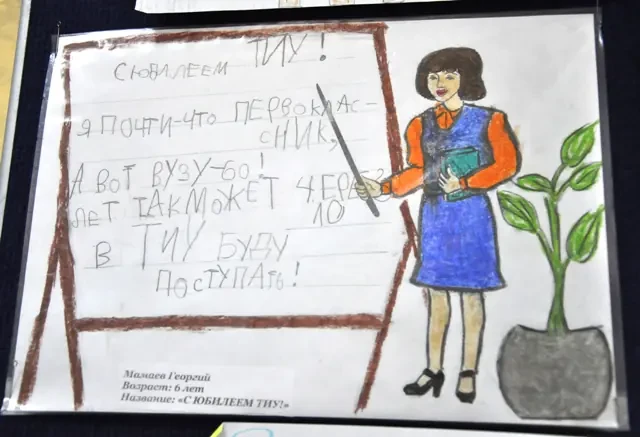 С ЮБИЛЕЕМ ТИУ!
Я ПОЧТИ-ЧТО ПЕРВОКЛАС-
СНИК,
А ВОТ ВУЗУ-60!
ЛЕТ ТАК МОЖЕТ ЧЕРЕЗ
10
В ТИУ БУДУ
ПОСТУПАТЬ!
Мамаев Георгий
Возраст: 6 лет
Название: «С ЮБИЛЕЕМ ТИУ!»